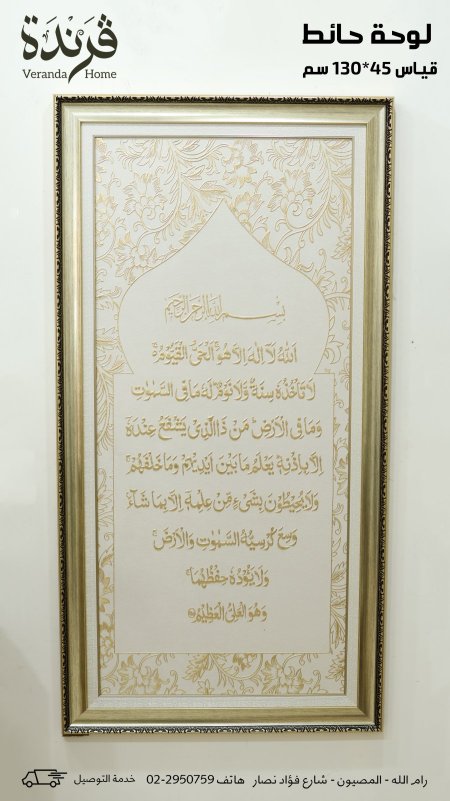 ڤرندة
Veranda Home
لوحة حائط
قياس 45*130 سم
بسم الله الرحمن الرحيم
الله لا اله الا هو الحي القيوم
لا تاخذه سنة ولا نوم له ما في السموت
وما في الارض من ذا الذي يشفع عنده
الا باذنه يعلم ما بين ايديهم وما خلفهم
ولا يحيطون بشيء من علمه الا بما شاء
وسع كرسيه السموت والارض
ولا يؤده حفظهما
وهو العلي العظيم
رام الله - المصيون - شارع فؤاد نصار هاتف 2950759-02 خدمة التوصيل